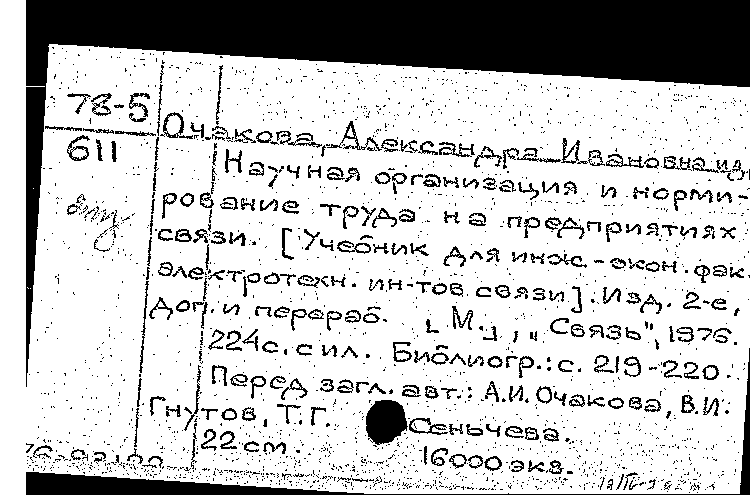 78-5
611
Очакова, Александра Ивановна и др.
Научная организация и норми-
рование труда на предприятиях
связи. [Учебник для инж.-экон. фак.
электротехн. ин-тов связи]. Изд. 2-е,
доп. и перераб. [М.], „Связь", 1976.
224с. с ил. Библиогр.: с. 219-220.
Перед загл. авт.: А.И. Очакова, В.И.
Гнутов, Т.Г. Сеньчева.
22 см. 16000 экз.